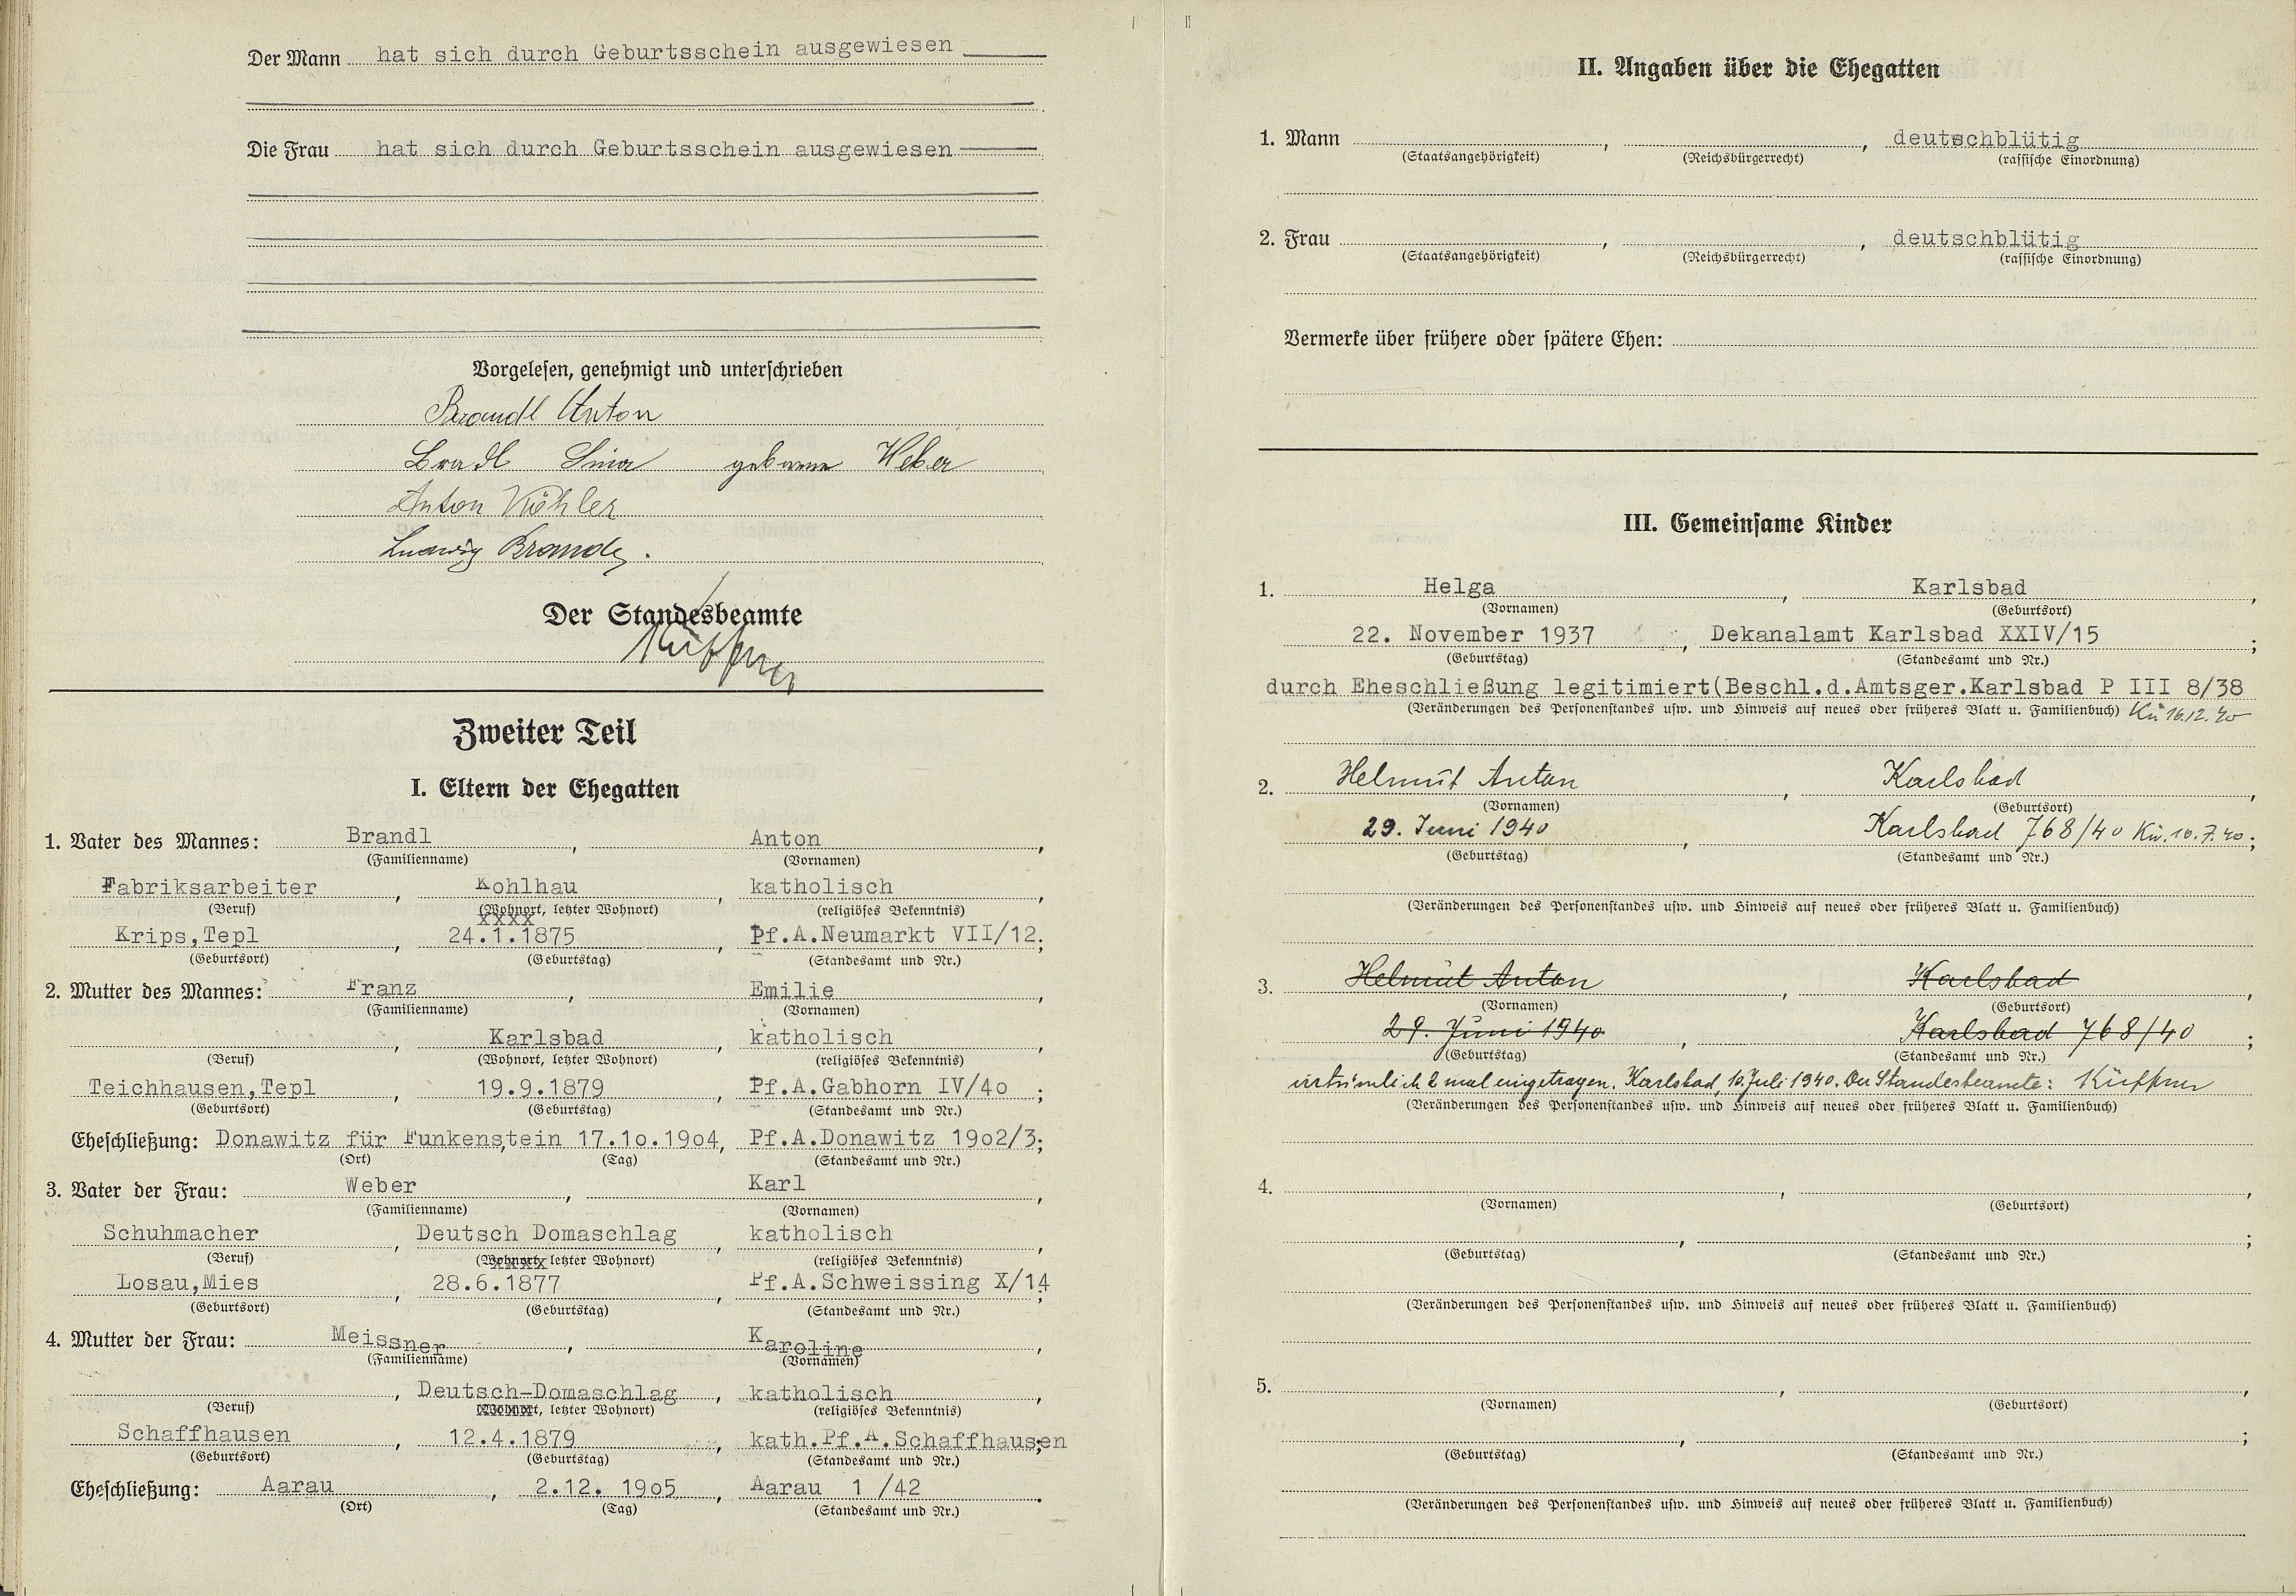 Der Mann hat sich durch Geburtsschein ausgewiesen
Die Frau hat sich durch Geburtsschein ausgewiesen
Vorgelesen, genehmigt und unterschrieben
Brandl Anton
Bradl Lina geborene Weber
Anton Köhler
Ludwig
Der Standesbeamte
Küffner
Zweiter Teil
I. Eltern der Ehegatten
1. Vater des Mannes: Brandl, Anton,
(Familienname) (Vornamen)
Fabriksarbeiter, Kohlhau, katholisch,
(Beruf) (Wohnort, letzter Wohnort) (religiöses Bekenntnis)
xxxx
Krips,Tepl, 24.1.1875, Pf.A.Neumarkt VII/12;
(Geburtsort) (Geburtstag) (Standesamt und Nr.)
2. Mutter des Mannes: Franz, Emilie,
(Familienname) (Vornamen)
, Karlsbad, katholisch,
(Beruf) (Wohnort, letzter Wohnort) (religiöses Bekenntnis)
Teichhausen,Tepl, 19.9.1879, Pf.A.Gabhorn IV/4o;
(Geburtsort) (Geburtstag) (Standesamt und Nr.)
Eheschließung: Donawitz für Funkenstein, 17.1o.19o4, Pf.A.Donawitz 19o2/3;
(Ort) (Tag) (Standesamt und Nr.)
3. Vater der Frau: Weber, Karl,
(Familienname) (Vornamen)
Schuhmacher, Deutsch Domaschlag, katholisch,
(Beruf) (Wohnort, letzter Wohnort) (religiöses Bekenntnis)
Losau,Mies, 28.6.1877, Pf.A.Schweissing X/14;
(Geburtsort) (Geburtstag) (Standesamt und Nr.)
4. Mutter der Frau: Meissner, Karoline,
(Familienname) (Vornamen)
, Deutsch-Domaschlag, katholisch,
(Beruf) (Wohnort, letzter Wohnort) (religiöses Bekenntnis)
Schaffhausen, 12.4.1879, kath.Pf.A.Schaffhausen;
(Geburtsort) (Geburtstag) (Standesamt und Nr.)
Eheschließung: Aarau, 2.12. 19o5, Aarau 1 /42.
(Ort) (Tag) (Standesamt und Nr.)
II. Angaben über die Ehegatten
1. Mann , , deutschblütig
(Staatsangehörigkeit) (Reichsbürgerrecht) (rassische Einordnung)
2. Frau , , deutschblütig
(Staatsangehörigkeit) (Reichsbürgerrecht) (rassische Einordnung)
Vermerke über frühere oder spätere Ehen:
III. Gemeinsame Kinder
1. Helga, Karlsbad,
(Vornamen) (Geburtsort)
22. November 1937, Dekanalamt Karlsbad XXIV/15;
(Geburtstag) (Standesamt und Nr.)
durch Eheschließung legitimiert(Beschl.d.Amtsger.Karlsbad P III 8/38
(Veränderungen des Personenstandes usw. und Hinweis auf neues oder früheres Blatt u. Familienbuch) Kü 16.12.40
2. Helmut Anton, Karlsbad,
(Vornamen) (Geburtsort)
29. Juni 1940, Karlsbad 768/40 Kü. 10.7.40;
(Geburtstag) (Standesamt und Nr.)
(Veränderungen des Personenstandes usw. und Hinweis auf neues oder früheres Blatt u. Familienbuch)
3. Helmut Anton, Karlsbad,
(Vornamen) (Geburtsort)
29. Juni 1940, Karlsbad 768/40;
(Geburtstag) (Standesamt und Nr.)
irrtümlich 2 mal eingetragen. Karlsbad, 10. Juli 1940. Der Standesbeamte: Küffner
(Veränderungen des Personenstandes usw. und Hinweis auf neues oder früheres Blatt u. Familienbuch)
4. , ,
(Vornamen) (Geburtsort)
, ;
(Geburtstag) (Standesamt und Nr.)
(Veränderungen des Personenstandes usw. und Hinweis auf neues oder früheres Blatt u. Familienbuch)
5. , ,
(Vornamen) (Geburtsort)
, ;
(Geburtstag) (Standesamt und Nr.)
(Veränderungen des Personenstandes usw. und Hinweis auf neues oder früheres Blatt u. Familienbuch)